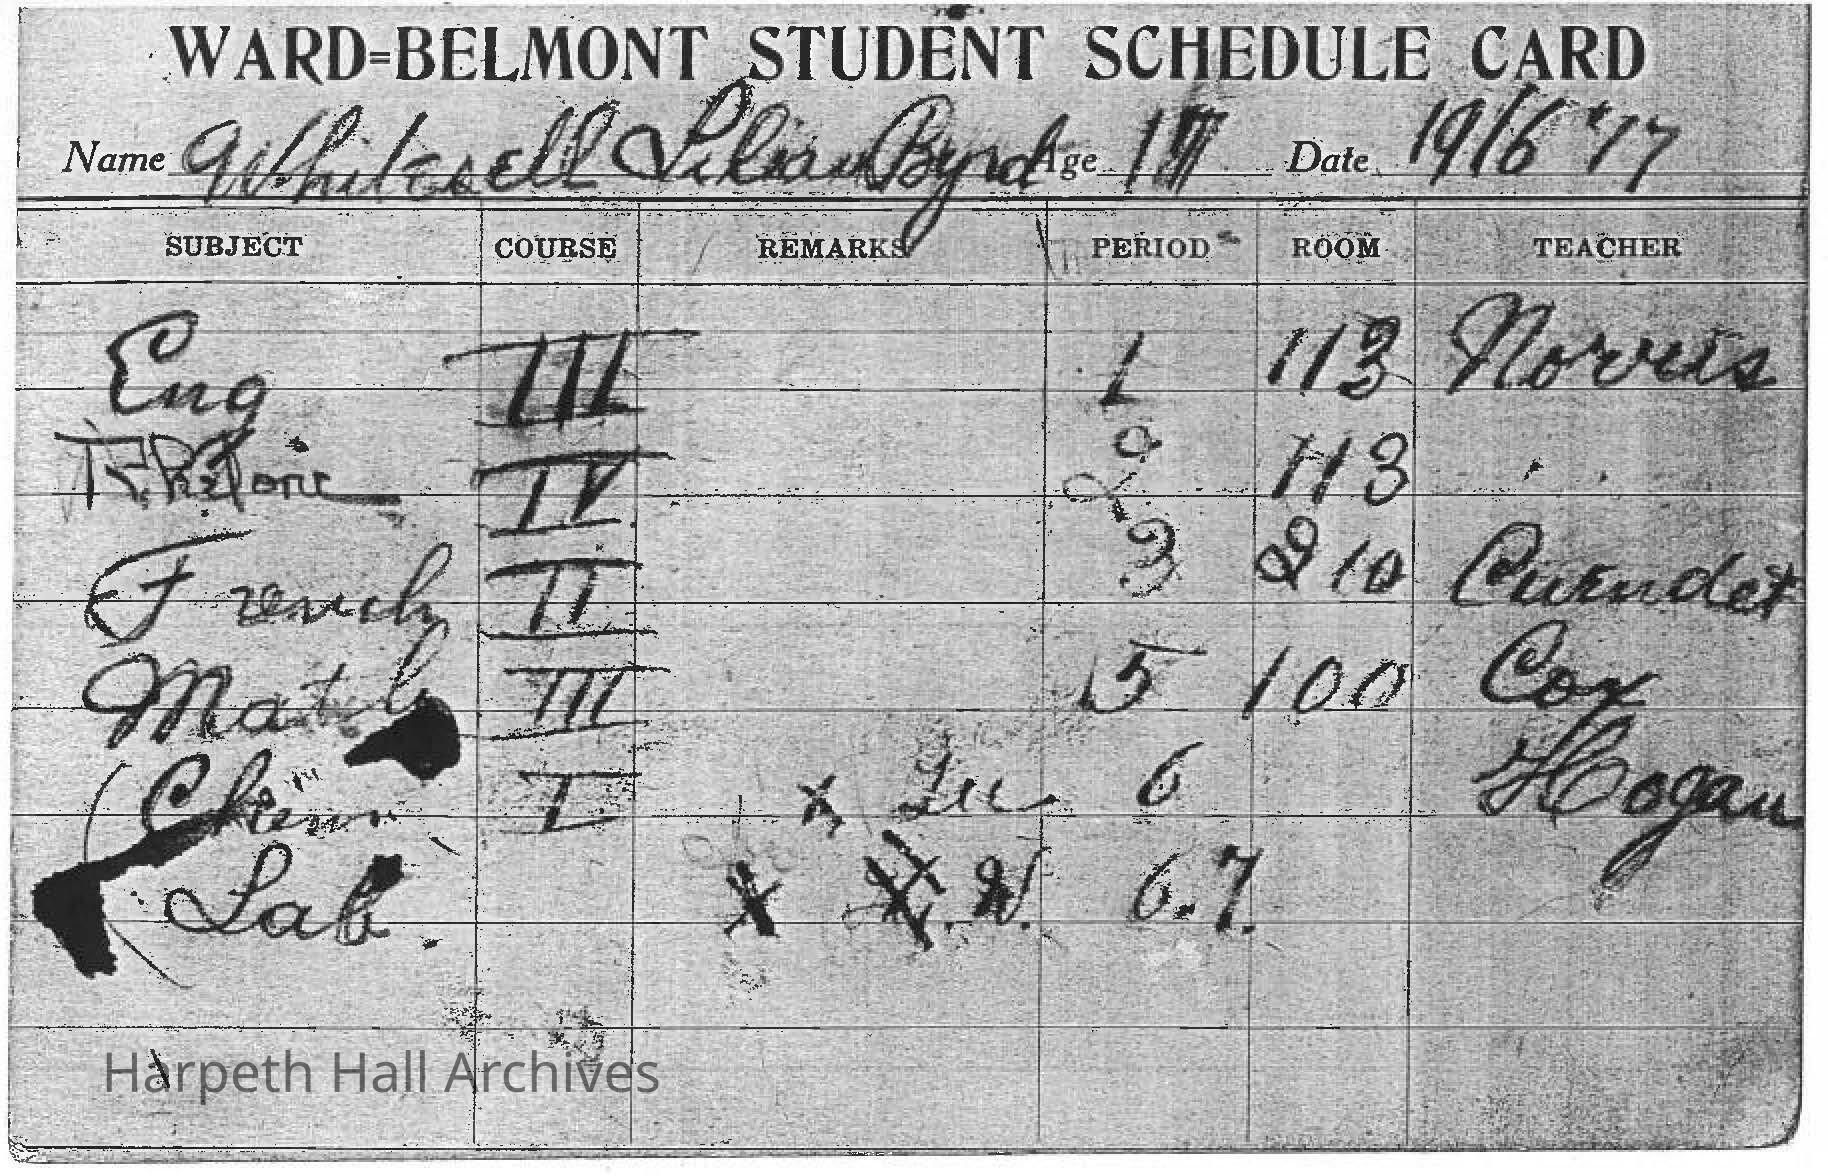 WARD=BELMONT STUDENT SCHEDULE CARD
Name Whitesell Lilian Byrd Age Date 1916 '17
SUBJECT COURSE REMARKS PERIOD ROOM TEACHER
Eng III 1 113 Norris
IV 2 113
French II 3 210
Math III 5 100 Cox
Chem I x 6 Hogan
Lab. x 6.7.
Harpeth Hall Archives